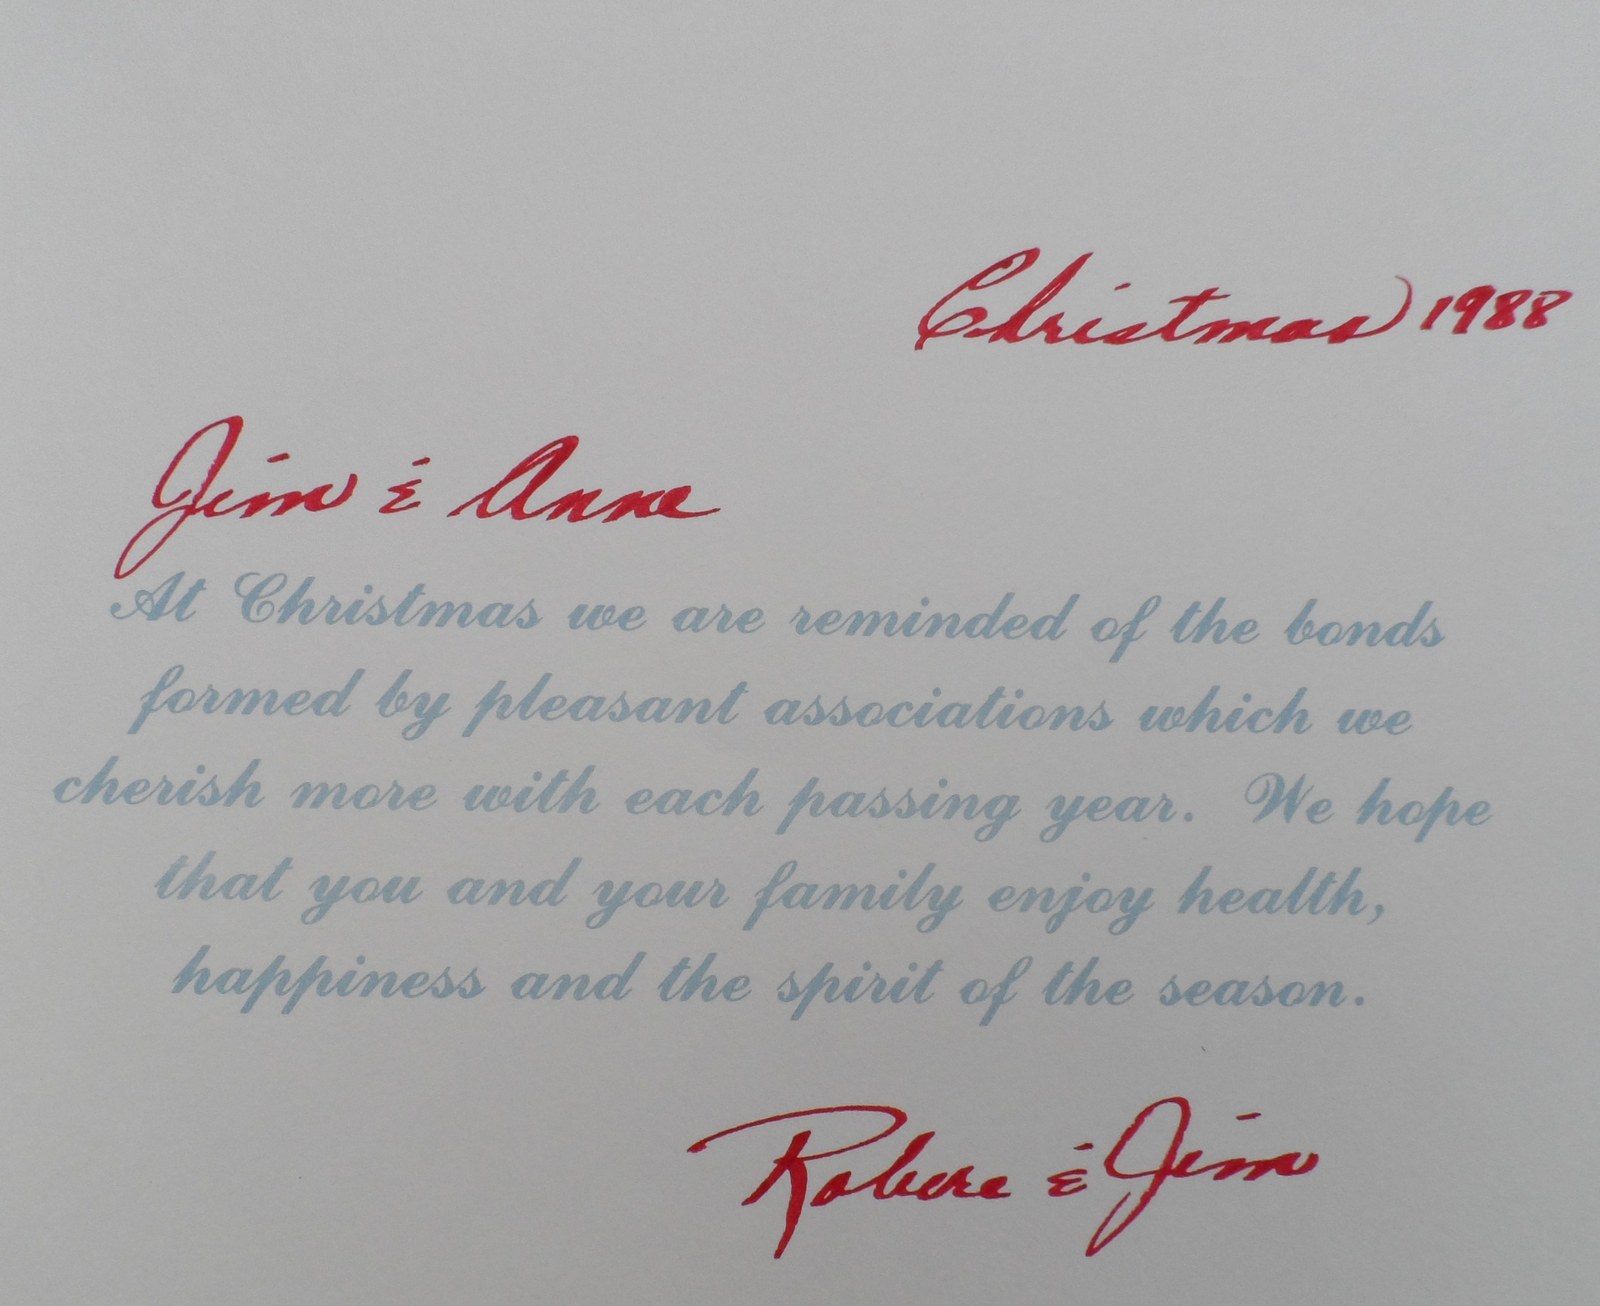 Christmas 1988
Jim & Anne
At Christmas we are reminded of the bonds
formed by pleasant associations which we
cherish more with each passing year. We hope
that you and your family enjoy health,
happiness and the spirit of the season.
& Jim